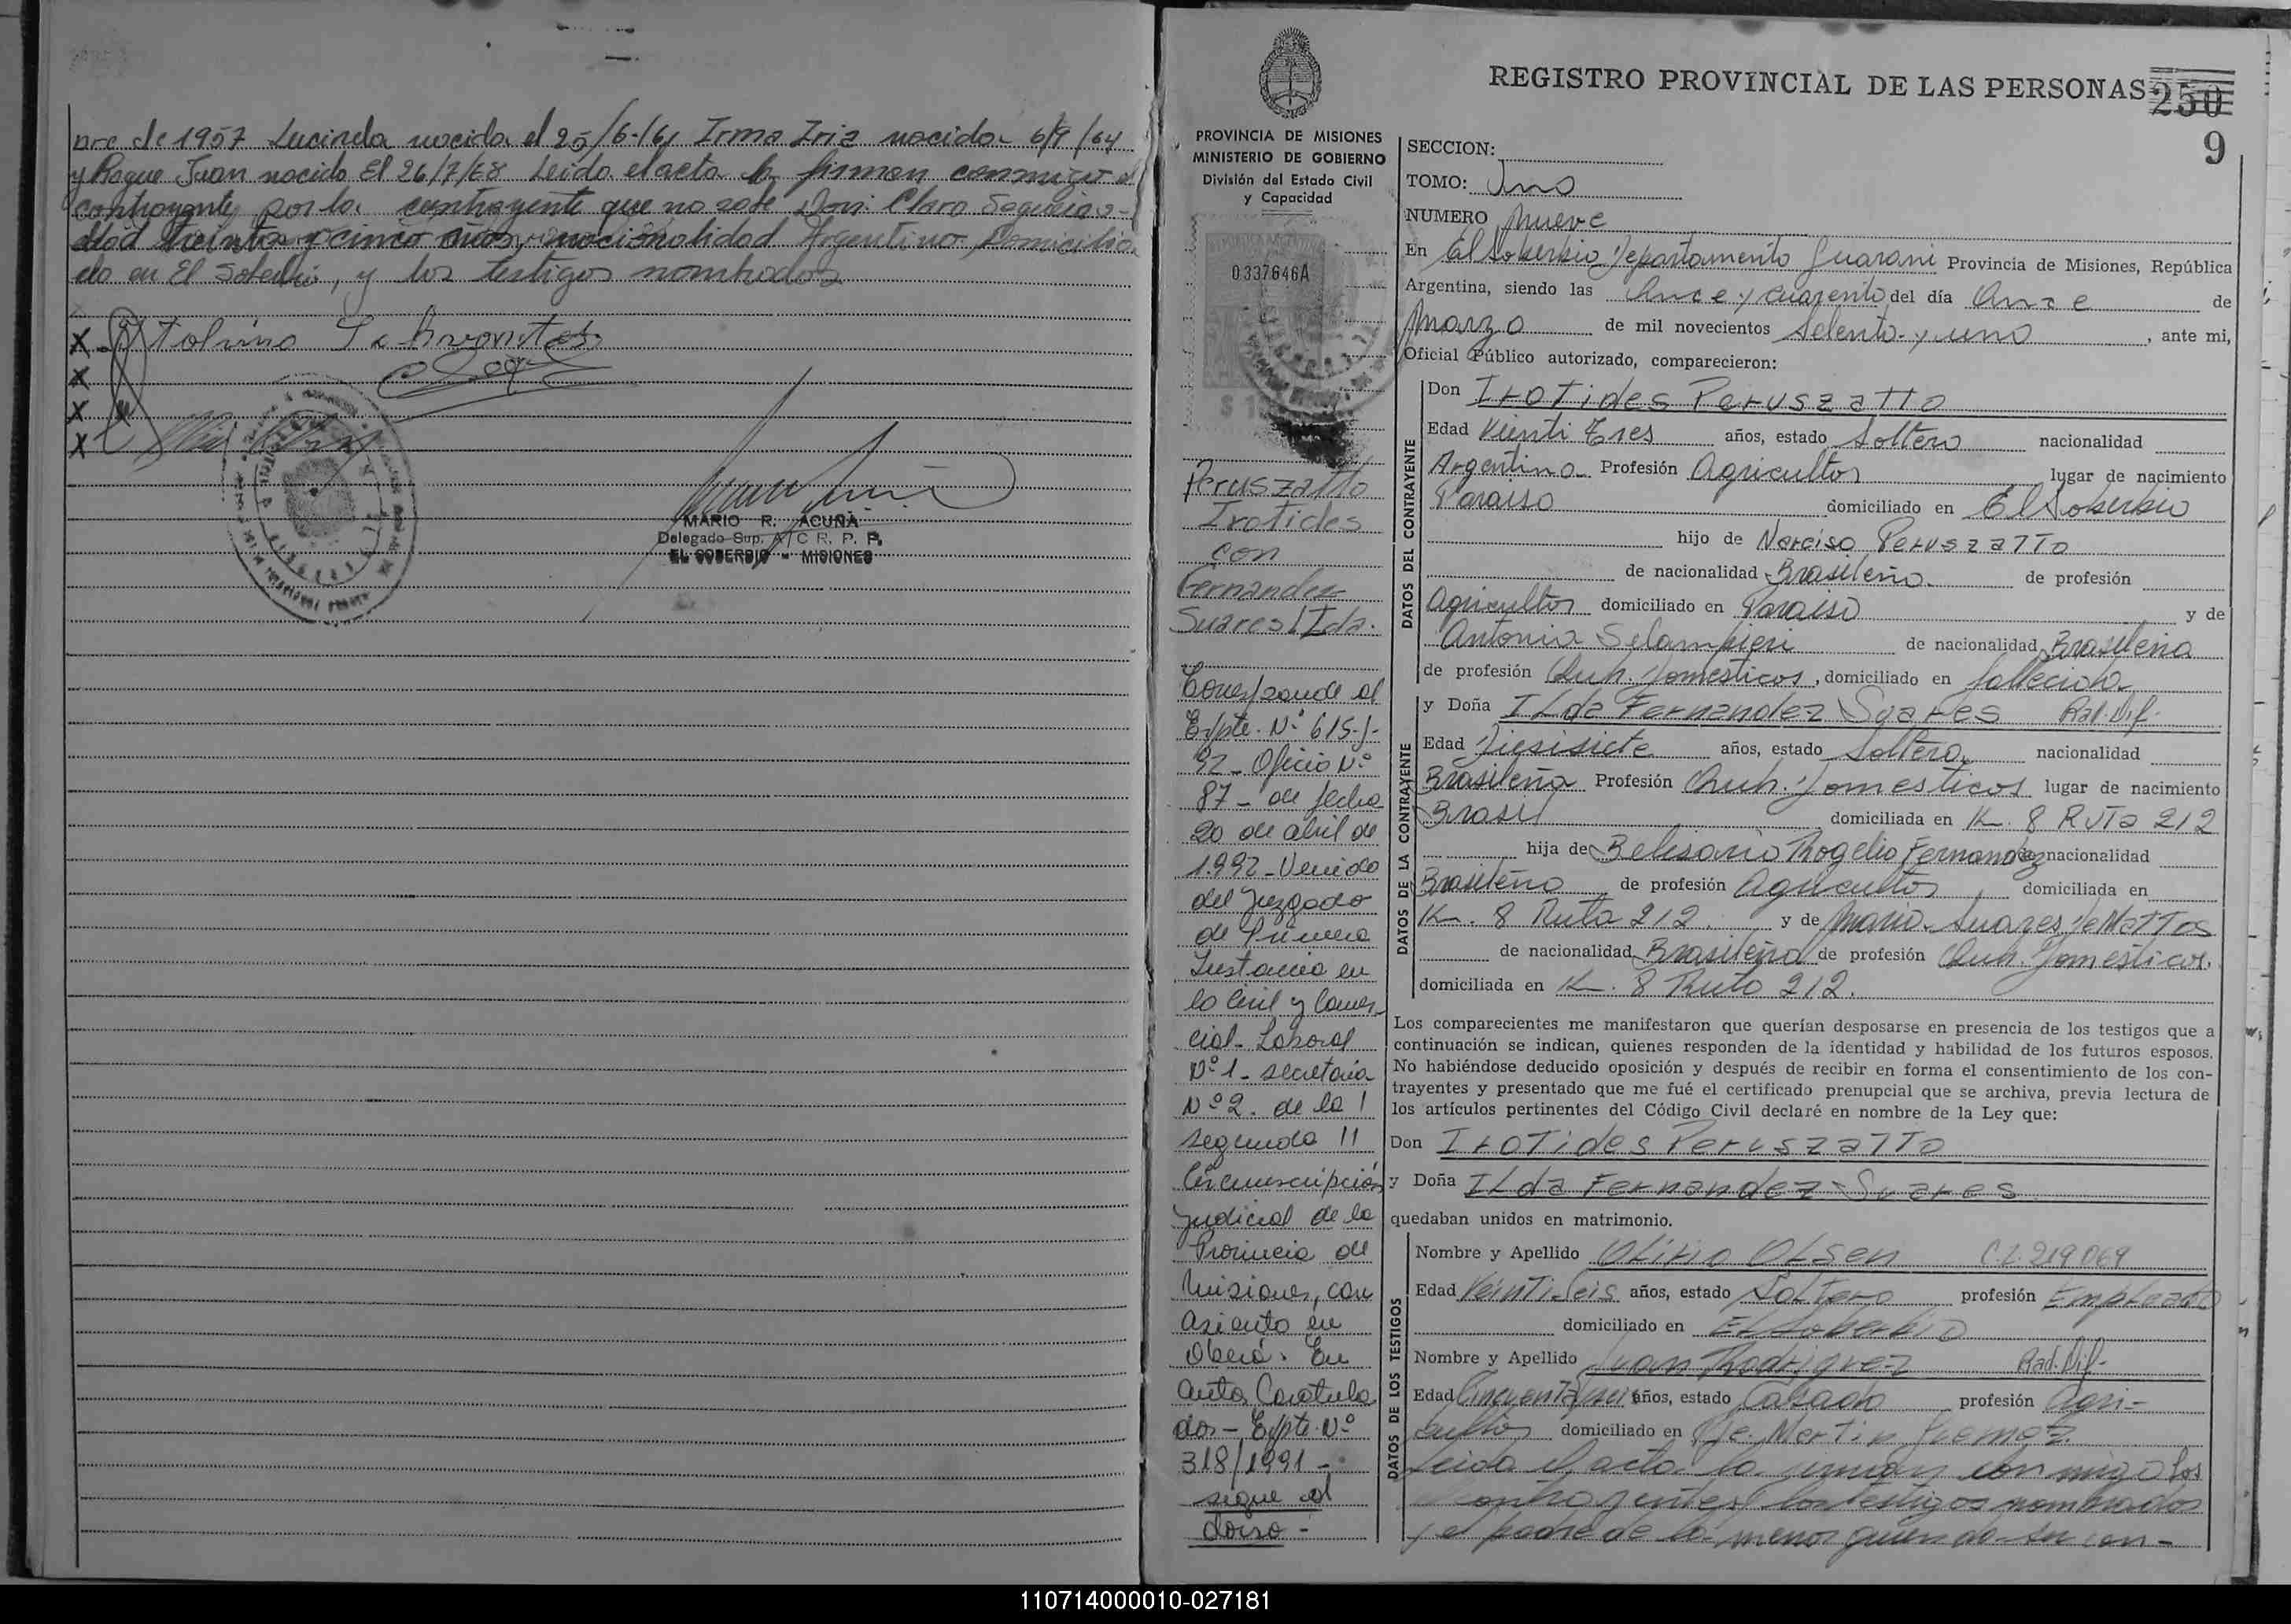 bre de 1957 Lucinda nacida el 25/6-/61 Irma Iris nacida 6/9/64
y Roque Juan nacido El 26/7/68 Leido el acta la firman conmigo el
contrayente, por la contrayente que no sabe Don: Claro Sequeira e-
dad treinta y cinco años, nacionalidad Argentino, Domicilia
do en El Soberbio, y los testigos nombrados
X
X
X
X
MARIO R. ACUÑA
Delegado Sup. A/C R. P. P.
EL SOBERBIO - MISIONES
REGISTRO PROVINCIAL DE LAS PERSONAS
250
9
PROVINCIA DE MISIONES
MINISTERIO DE GOBIERNO
División del Estado Civil
y Capacidad
0337646A
Peruszatto
Irotides
con
Fernandez
Suares Ilda.
Corresponde al
Expte. Nº 615-J-
92- Oficio Nº
87- de fecha
20 de abril de
1.992- Venido
del Juzgado
de Primera
Instancia en
lo Civil y Comer-
cial- Laboral
Nº 1- secretaria
Nº 2. de la
segunda II
Circunscripción
Judicial de la
Provincia de
Misiones, con
asiento en
Oberá. En
autos Caratula
dos- Expte. Nº
318/1991-
sigue al
dorso-
SECCION:
TOMO: Uno
NUMERO Nueve
En El Soberbio Departamento Guarani Provincia de Misiones, República
Argentina, siendo las Once y cuarenta del día Once de
Marzo de mil novecientos Setenta y uno, ante mi,
Oficial Público autorizado, comparecieron:
DATOS DEL CONTRAYENTE
Don Irotides Peruszatto
Edad Veinti Tres años, estado Soltero nacionalidad
Argentina Profesión Agricultor lugar de nacimiento
Paraiso domiciliado en El Soberbio
hijo de Narciso Peruszatto
de nacionalidad Brasileña de profesión
Agricultor domiciliado en Paraiso y de
Antonia Selampieri de nacionalidad Brasileña
de profesión Queh. Domesticos, domiciliado en fallecida
DATOS DE LA CONTRAYENTE
y Doña Ilda Fernandez Suares Rad. Dif.
Edad Diesisiete años, estado Soltera nacionalidad
Brasileña Profesión Queh. Domesticos lugar de nacimiento
Brasil domiciliada en K. 8 Ruta 212
hija de Belisario Rogelio Fernandez de nacionalidad
Brasileño de profesión Agricultor, domiciliada en
K. 8 Ruta 212. y de Maria Suares de Mattos
de nacionalidad Brasileña de profesión Queh. Domesticos.
domiciliada en K. 8 Ruta 212.
Los comparecientes me manifestaron que querían desposarse en presencia de los testigos que a
continuación se indican, quienes responden de la identidad y habilidad de los futuros esposos.
No habiéndose deducido oposición y después de recibir en forma el consentimiento de los con-
trayentes y presentado que me fué el certificado prenupcial que se archiva, previa lectura de
los artículos pertinentes del Código Civil declaré en nombre de la Ley que:
Don Irotides Peruszatto
y Doña Ilda Fernandez Suares
quedaban unidos en matrimonio.
DATOS DE LOS TESTIGOS
Nombre y Apellido Olsen C.I. 219069
Edad Veinti Seis años, estado Soltero profesión Empleado
domiciliado en El Soberbio
Nombre y Apellido Juan Rodriguez Rad. Dif.
Edad Cincuenta y seis años, estado Casado profesión Agri-
cultor domiciliado en Martin Guemez
Leida el acta la firman con migo los
contrayentes los testigos nombrados
y el padre de la menor quien da su con-
110714000010-027181